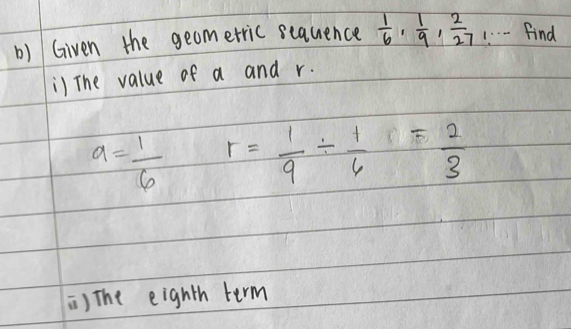 b) Given the geometric sequence 1/6, 1/9, 2/27, ... find
i) The value of a and r.
a = 1/6 r = 1/9 ÷ 1/6 = 2/3
ii) The eighth term